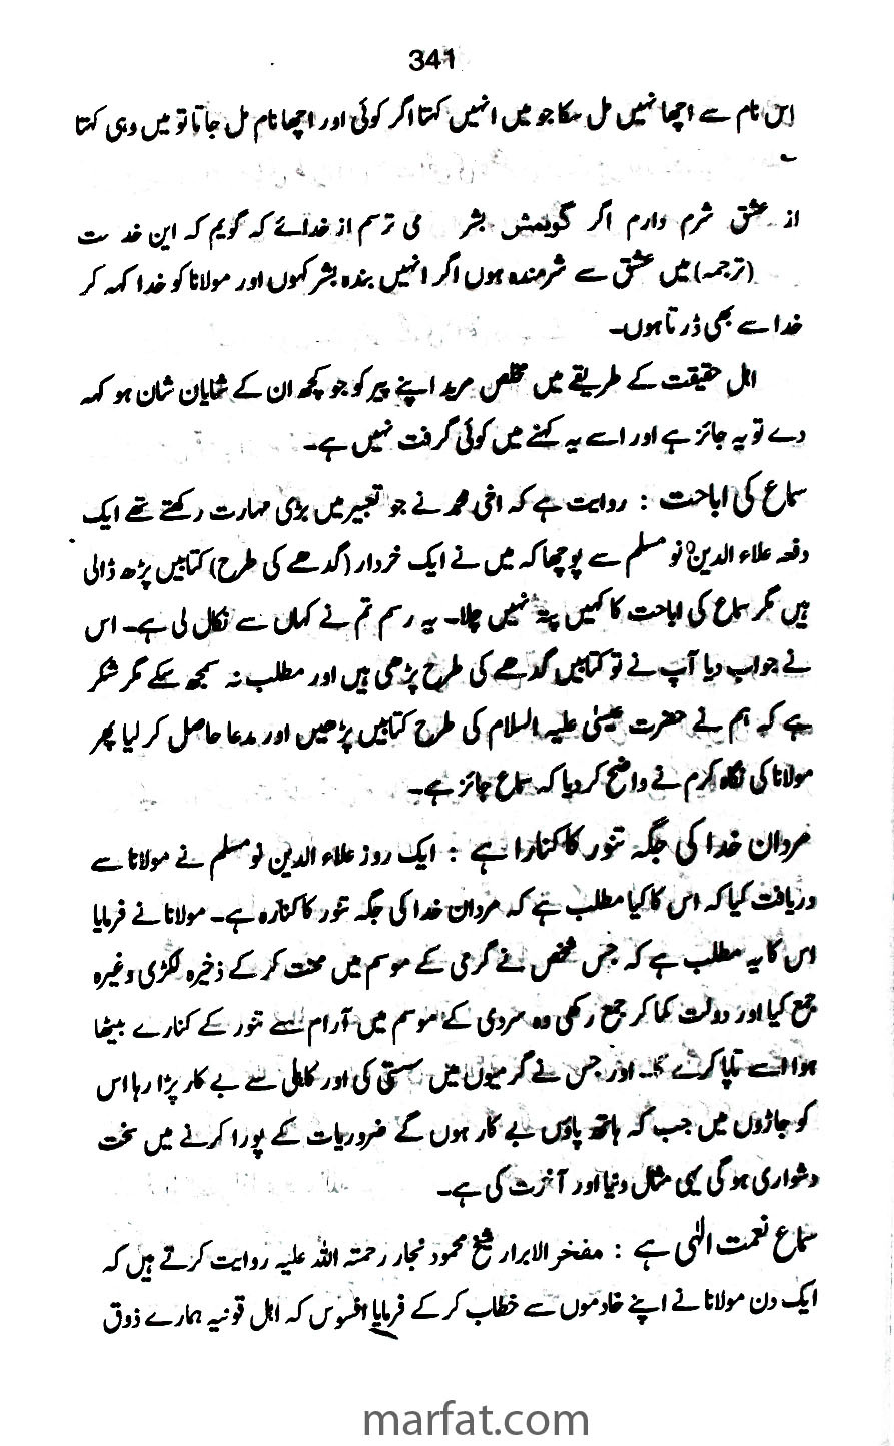 341
اس نام سے اچھا نہیں مل سکا جو میں انہیں کہتا اگر کوئی اور اچھا نام مل جاتا تو میں وہی کہتا
۔
از عشق شرم دارم اگر گویمش بشر می ترسم از خدائے کہ گویم کہ این خد ست
(ترجمہ) میں عشق سے شرمندہ ہوں اگر انہیں بندہ بشر کہوں اور مولانا کو خدا کہہ کر
خدا سے بھی ڈرتا ہوں۔
اہل حقیقت کے طریقے میں مخلص مرید اپنے پیر کو جو کچھ ان کے شایان شان ہو کہہ
دے تو یہ جائز ہے اور اسے یہ کہنے میں کوئی گرفت نہیں ہے۔
سماع کی اباحت : روایت ہے کہ اخی محمد نے جو تعبیر میں بڑی مہارت رکھتے تھے ایک
دفعہ علاء الدین نو مسلم سے پوچھا کہ میں نے ایک خردار (گدھے کی طرح) کتابیں پڑھ ڈالی
ہیں مگر سماع کی اباحت کا کہیں پتہ نہیں چلا۔ یہ رسم تم نے کہاں سے نکال لی ہے۔ اس
نے جواب دیا آپ نے تو کتابیں گدھے کی طرح پڑھی ہیں اور مطلب نہ سمجھ سکے مگر شکر
ہے کہ ہم نے حضرت عیسیٰ علیہ السلام کی طرح کتابیں پڑھیں اور مدعا حاصل کر لیا پھر
مولانا کی نگاہ کرم نے واضح کر دیا کہ سماع جائز ہے۔
مردان خدا کی جگہ تنور کا کنارا ہے : ایک روز علاء الدین نو مسلم نے مولانا سے
دریافت کیا کہ اس کا کیا مطلب ہے کہ مردان خدا کی جگہ تنور کا کنارہ ہے۔ مولانا نے فرمایا
اس کا یہ مطلب ہے کہ جس شخص نے گرمی کے موسم میں محنت کر کے ذخیرہ لکڑی وغیرہ
جمع کیا اور دولت کما کر جمع رکھی وہ سردی کے موسم میں آرام سے تنور کے کنارے بیٹھا
ہوا اسے تاپا کرے گا۔ اور جس نے گرمیوں میں سستی کی اور کاہلی سے بے کار پڑا رہا اس
کو جاڑوں میں جب کہ ہاتھ پاؤں بے کار ہوں گے ضروریات کے پورا کرنے میں سخت
دشواری ہو گی یہی مثال دنیا اور آخرت کی ہے۔
سماع نعمت الٰہی ہے : مفخر الابرار شیخ محمود نجار رحمتہ اللہ علیہ روایت کرتے ہیں کہ
ایک دن مولانا نے اپنے خادموں سے خطاب کر کے فرمایا افسوس کہ اہل قونیہ ہمارے ذوق
marfat.com